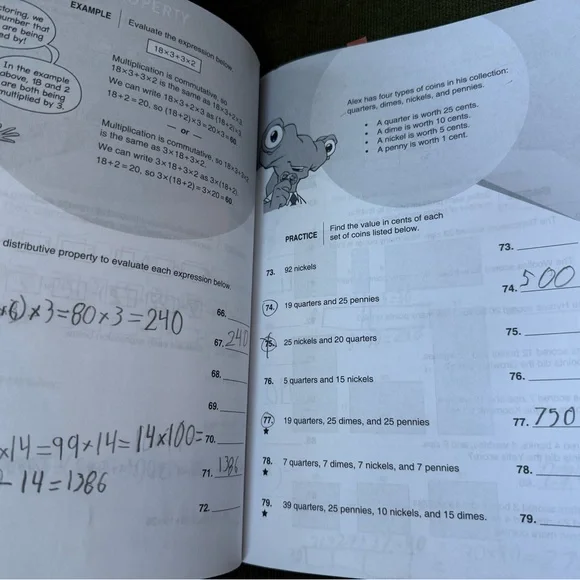 toring, we
umber that
are being
ed by!
In the example
above, 18 and 2
are both being
multiplied by 3.
EXAMPLE
Evaluate the expression below.
18×3+3×2
Multiplication is commutative, so
18×3+3×2 is the same as 18×3+2×3.
We can write 18×3+2×3 as (18+2)×3.
18+2=20, so (18+2)×3=20×3=60.
— or —
Multiplication is commutative, so 18×3+3×2
is the same as 3×18+3×2.
We can write 3×18+3×2 as 3×(18+2).
18+2=20, so 3×(18+2)=3×20=60.
distributive property to evaluate each expression below.
×3=80×3=240
66.
67. 240
68.
69.
×14=99×14=14×100=
70.
14=1386
71. 1386
72.
Alex has four types of coins in his collection:
quarters, dimes, nickels, and pennies.
• A quarter is worth 25 cents.
• A dime is worth 10 cents.
• A nickel is worth 5 cents.
• A penny is worth 1 cent.
PRACTICE
Find the value in cents of each
set of coins listed below.
73. 92 nickels
73.
74. 19 quarters and 25 pennies
74. 500
75. 25 nickels and 20 quarters
75.
76. 5 quarters and 15 nickels
76.
77. 19 quarters, 25 dimes, and 25 pennies
77. 750
★
78. 7 quarters, 7 dimes, 7 nickels, and 7 pennies
78.
★
79. 39 quarters, 25 pennies, 10 nickels, and 15 dimes.
79.
★